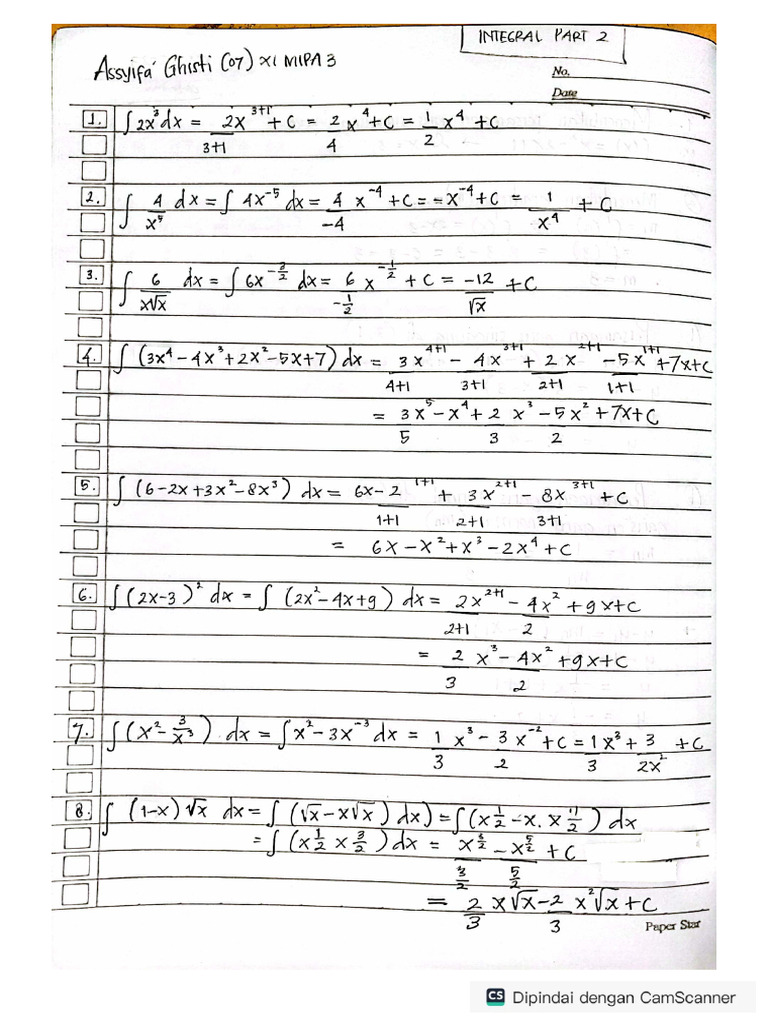 INTEGRAL PART 2
Assyifa' Ghisti (07) XI MIPA 3
No.
Date
1. ∫2x³dx = 2x³⁺¹/3+1 + C = 2/4 x⁴ + C = 1/2 x⁴ + C
2. ∫ 4/x⁵ dx = ∫ 4x⁻⁵ dx = 4/-4 x⁻⁴ + C = -x⁻⁴ + C = 1/x⁴ + C
3. ∫ 6/x√x dx = ∫ 6x^-3/2 dx = 6/-1/2 x^-1/2 + C = -12/√x + C
4. ∫ (3x⁴ - 4x³ + 2x² - 5x + 7) dx = 3x⁴⁺¹/4+1 - 4x³⁺¹/3+1 + 2x²⁺¹/2+1 - 5x¹⁺¹/1+1 + 7x + C
= 3x⁵/5 - x⁴ + 2/3 x³ - 5x²/2 + 7x + C
5. ∫ (6 - 2x + 3x² - 8x³) dx = 6x - 2¹⁺¹/1+1 + 3x²⁺¹/2+1 - 8x³⁺¹/3+1 + C
= 6x - x² + x³ - 2x⁴ + C
6. ∫ (2x-3)² dx = ∫ (2x² - 4x + 9) dx = 2x²⁺¹/2+1 - 4x²/2 + 9x + C
= 2/3 x³ - 4x²/2 + 9x + C
7. ∫ (x² - 3/x³) dx = ∫ x² - 3x⁻³ dx = 1/3 x³ - 3/2 x⁻² + C = 1/3 x³ + 3/2x² + C
8. ∫ (1-x) √x dx = ∫ (√x - x√x) dx) = ∫ (x^1/2 - x. x^1/2) dx
= ∫ (x^1/2 x^3/2) dx = x^3/2/3/2 - x^5/2/5/2 + C
= 2/3 x√x - 2/3 x²√x + C
Paper Star
CS Dipindai dengan CamScanner